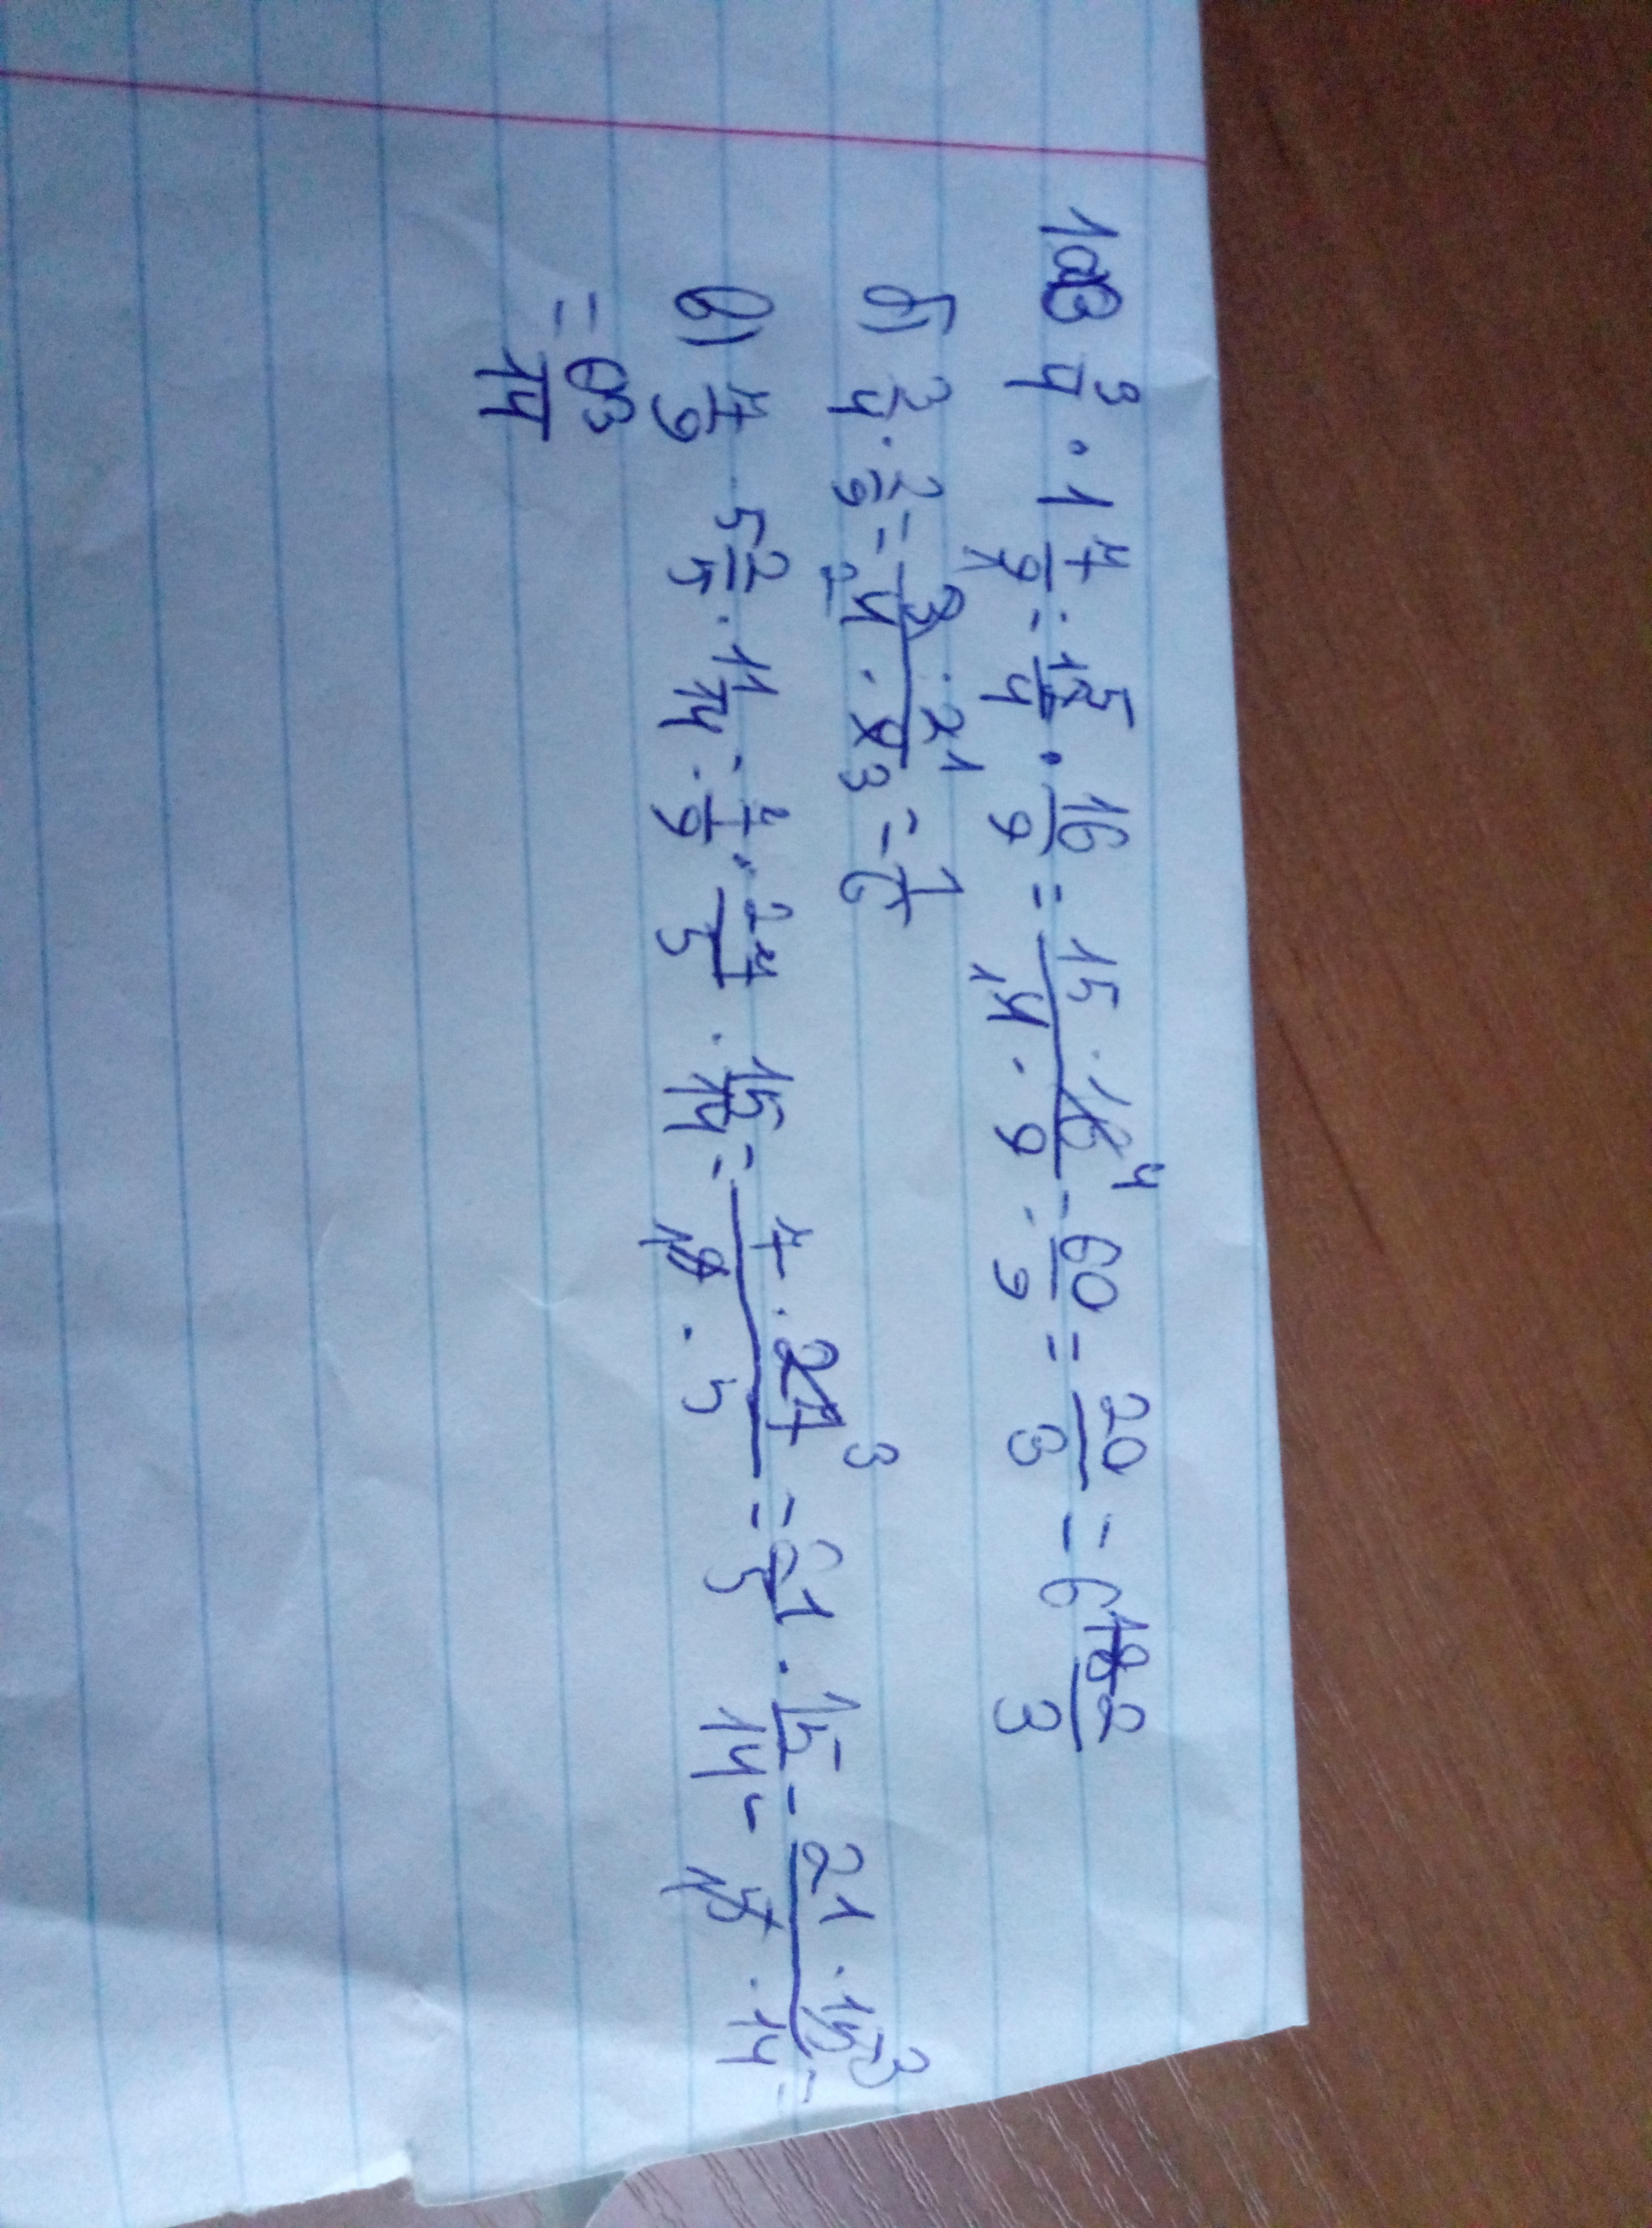 1а) 3 3/4 · 1 7/9 = 15/4 · 16/9 = 15 · 16 4 / 1 4 · 9 = 60/9 = 20/3 = 6 2/3
б) 3/4 · 2/9 = 3 · 2 1 / 2 4 · 9 3 = 1/6
в) 7/9 · 5 2/5 · 1 1/14 = 7/9 · 27/5 · 15/14 = 7 · 27 3 / 1 9 · 5 = 21/5 · 15/14 = 21 · 15 3 / 1 5 · 14 =
= 63/14